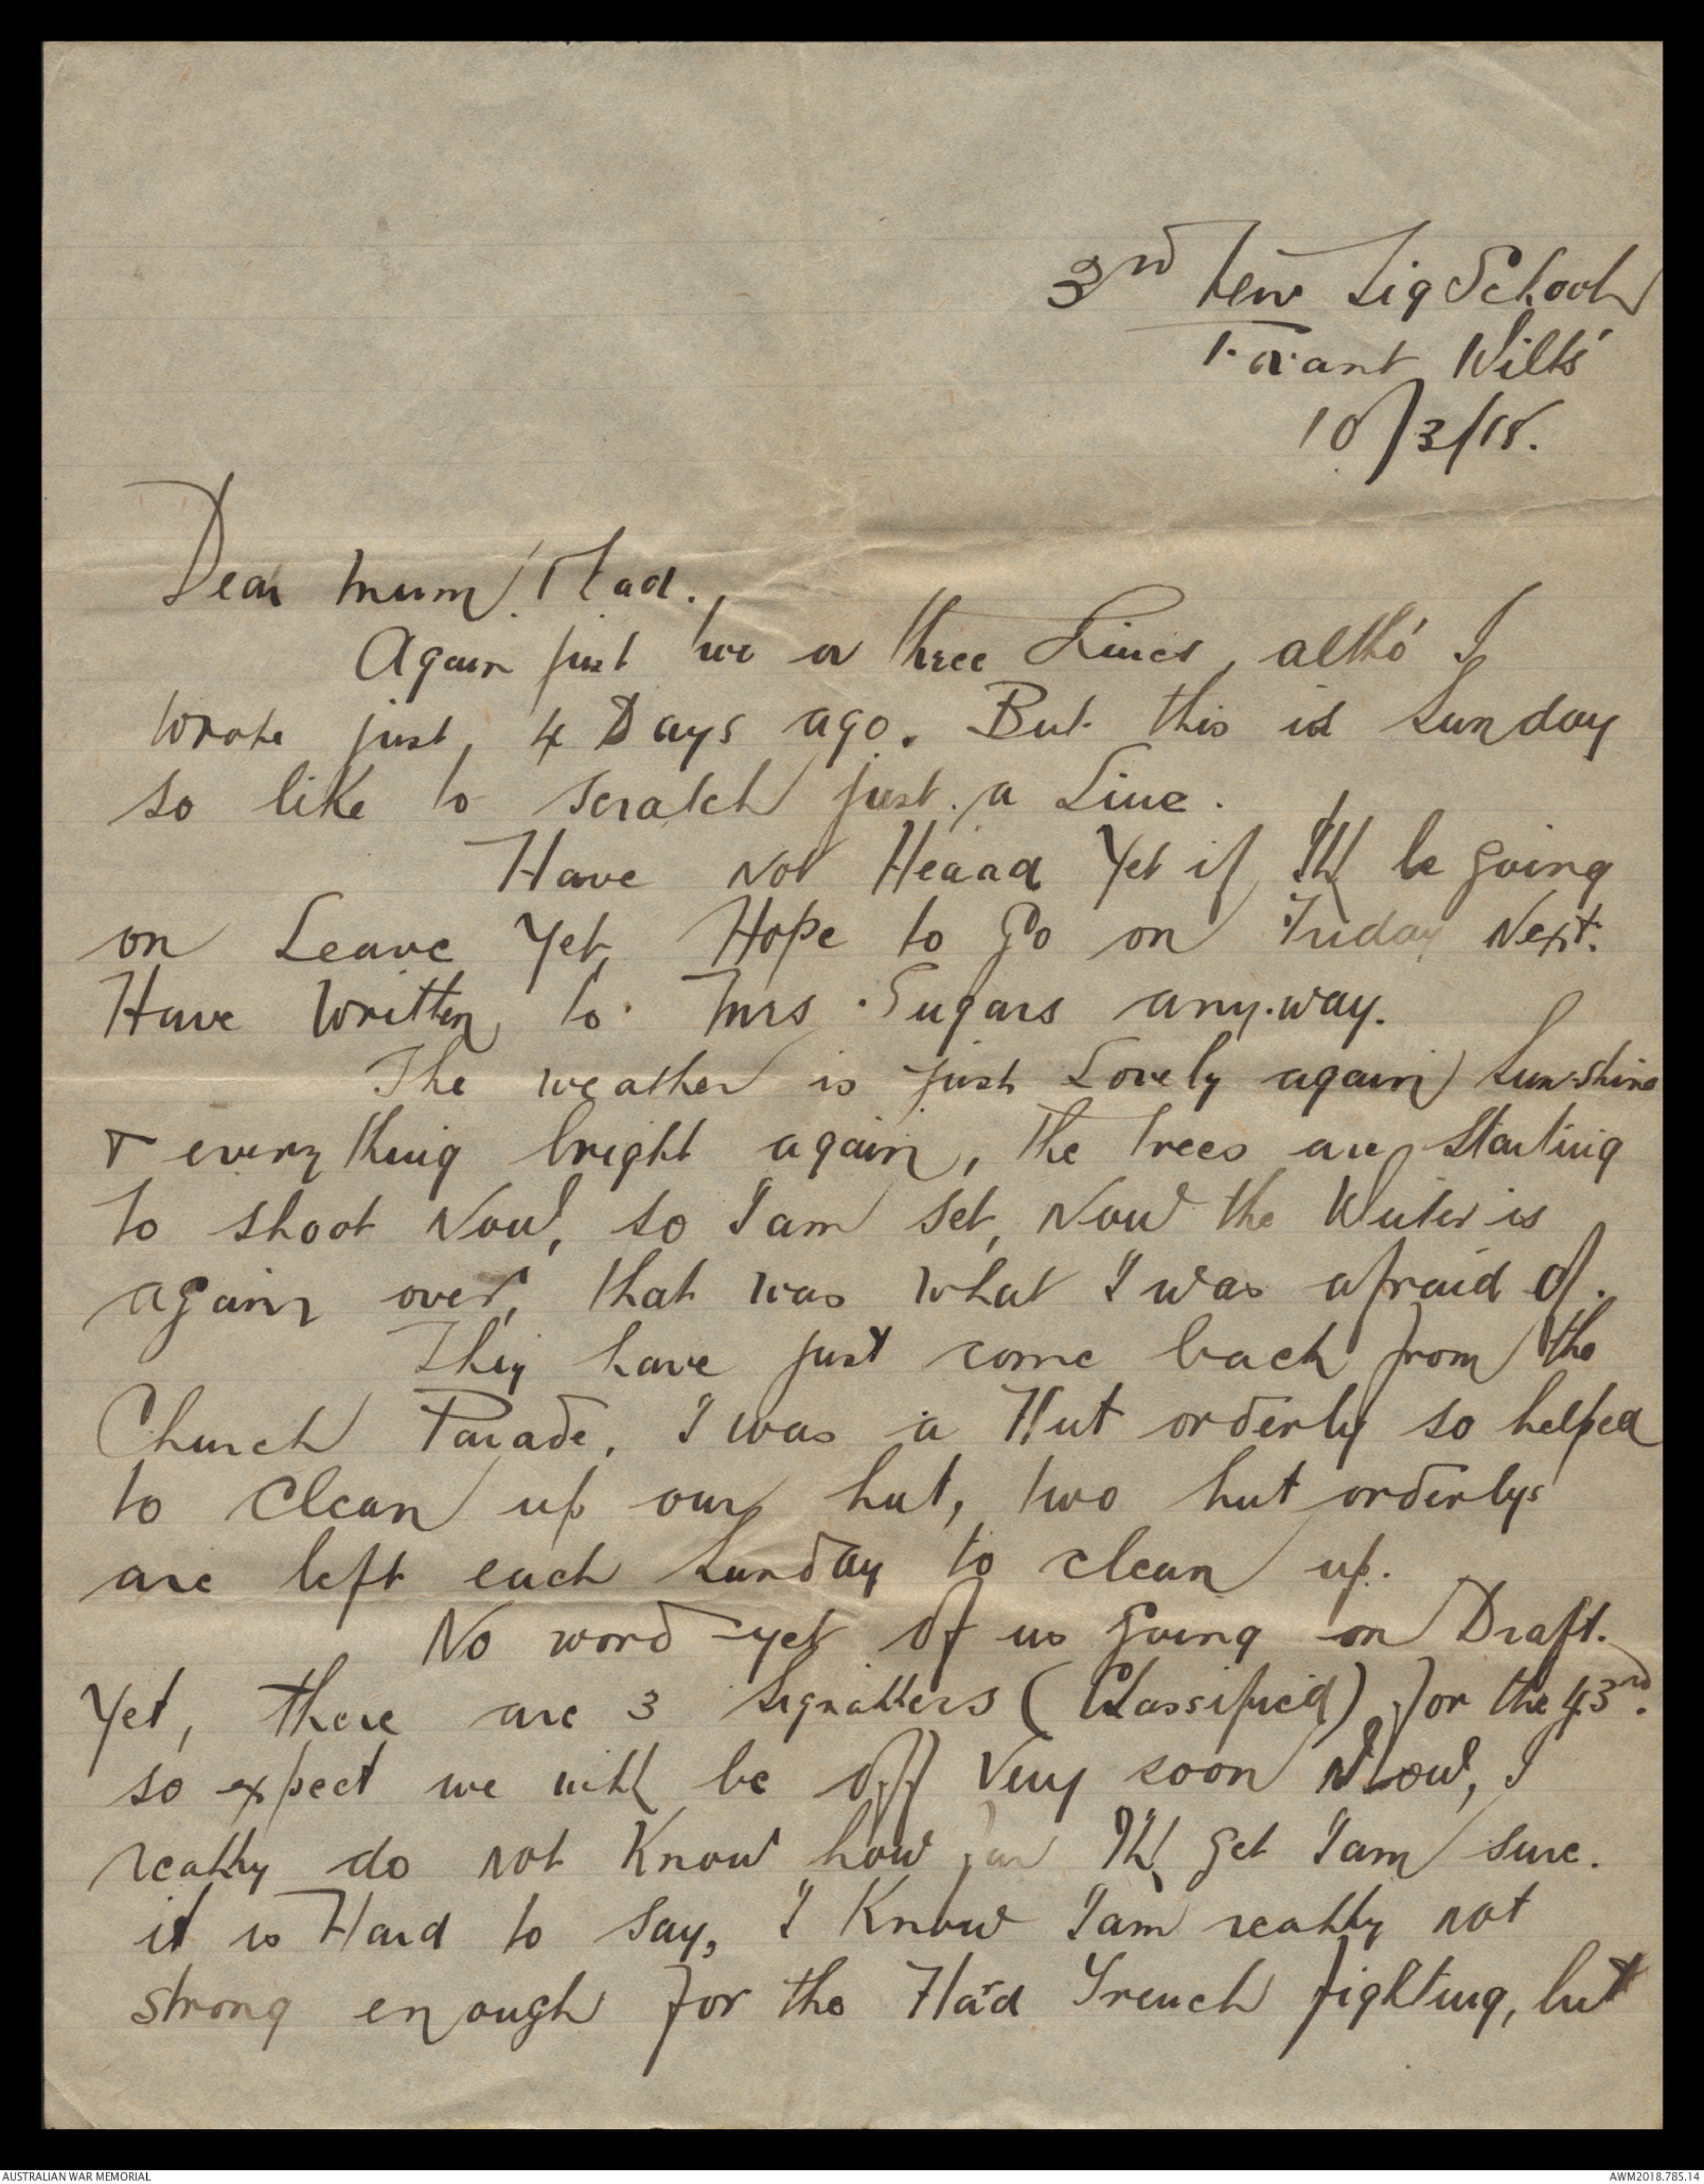 3rd Sig School
Fovant Wilts
10/3/18.
Dear Mum & Dad.,
Again just two or three Lines, altho' I
wrote just, 4 Days ago. But this is Sunday
so like to scratch just a Line.
Have Not Heard Yet if I'll be going
on Leave Yet, Hope to go on Friday Next.
Have written to Mrs Sugars any.way.
The weather is just Lovely again, Sunshine
& everything bright again, The trees are starting
to shoot Now, so I am set, Now the Winter is
again over, that was what I was afraid of.
They have just come back from the
Church Parade, I was a Hut orderly so helped
to clean up our hut, two hut orderlys
are left each Sunday to clean up.
No word yet of us going on Draft.
Yet, there are 3 Signallers (Classified) for the 43rd.
so expect we will be off Very soon Now, I
really do not Know how far I'll get I am sure.
it is Hard to say, I Know I am really not
strong enough for the Ha'd Trench fighting, but
AUSTRALIAN WAR MEMORIAL
AWM2018.785.14